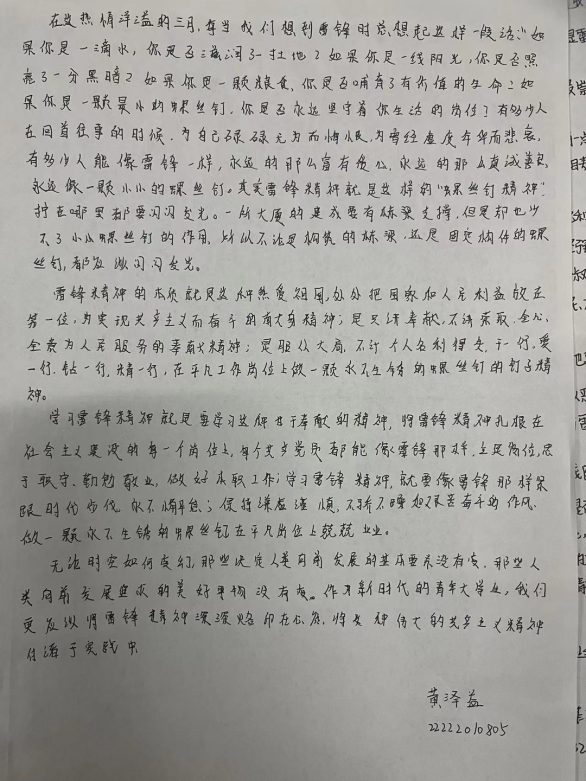 在这热情洋溢的三月,每当我们想到雷锋时总想起这样一段话:“如
果你是一滴水,你是否滋润了一寸土地?如果你是一线阳光,你是否照
亮了一分黑暗?如果你是一颗粮食,你是否哺育了有价值的生命?如
果你是一颗最小的螺丝钉,你是否永远坚守着你生活的岗位?有多少人
在回首往事的时候,为自己碌碌无为而悔恨,为曾经虚度年华而悲哀,
有多少人能像雷锋一样,永远的那么富有爱心,永远的那么真诚善良,
永远像一颗小小的螺丝钉。其实雷锋精神就是这样的“螺丝钉精神”
拧在哪里都要闪闪发光。一所大厦的建成要有栋梁支撑,但是却也少
不了小小螺丝钉的作用,所以不论是钢筋的栋梁,还是固定构件的螺
丝钉,都应该闪闪发光。
雷锋精神的本质就是这种热爱祖国,处处把国家和人民利益放在
第一位,为实现共产主义而奋斗的献身精神;是只讲奉献,不讲索取,全心
全意为人民服务的奉献精神;是服从大局,不计个人名利得失,干一行,爱
一行,钻一行,精一行,在平凡工作岗位上做一颗永不生锈的螺丝钉的钉子精
神。
学习雷锋精神就是要学习这种甘于奉献的精神,将雷锋精神扎根在
社会主义建设的每一个岗位上,每个共产党员都能像雷锋那样,立足岗位,忠
于职守、勤勉敬业,做好本职工作;学习雷锋精神,就要像雷锋那样紧
跟时代步伐,永不懈怠;保持谦虚谨慎,不骄不躁和艰苦奋斗的作风,
做一颗永不生锈的螺丝钉在平凡岗位上兢兢业业。
无论时空如何变幻,那些决定人类向前发展的基本要素没有变,那些人
类向前发展追求的美好事物没有变。作为新时代的青年大学生,我们
更应该将雷锋精神深深烙印在心底,将这种伟大的共产主义精神
付诸于实践中
黄泽益
22222010805